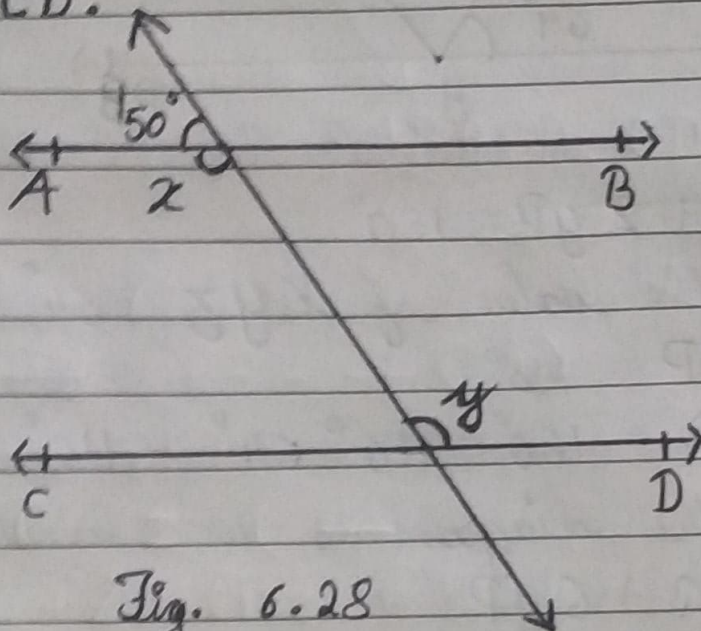 CD.
50°
A x B
y
C D
Fig. 6.28